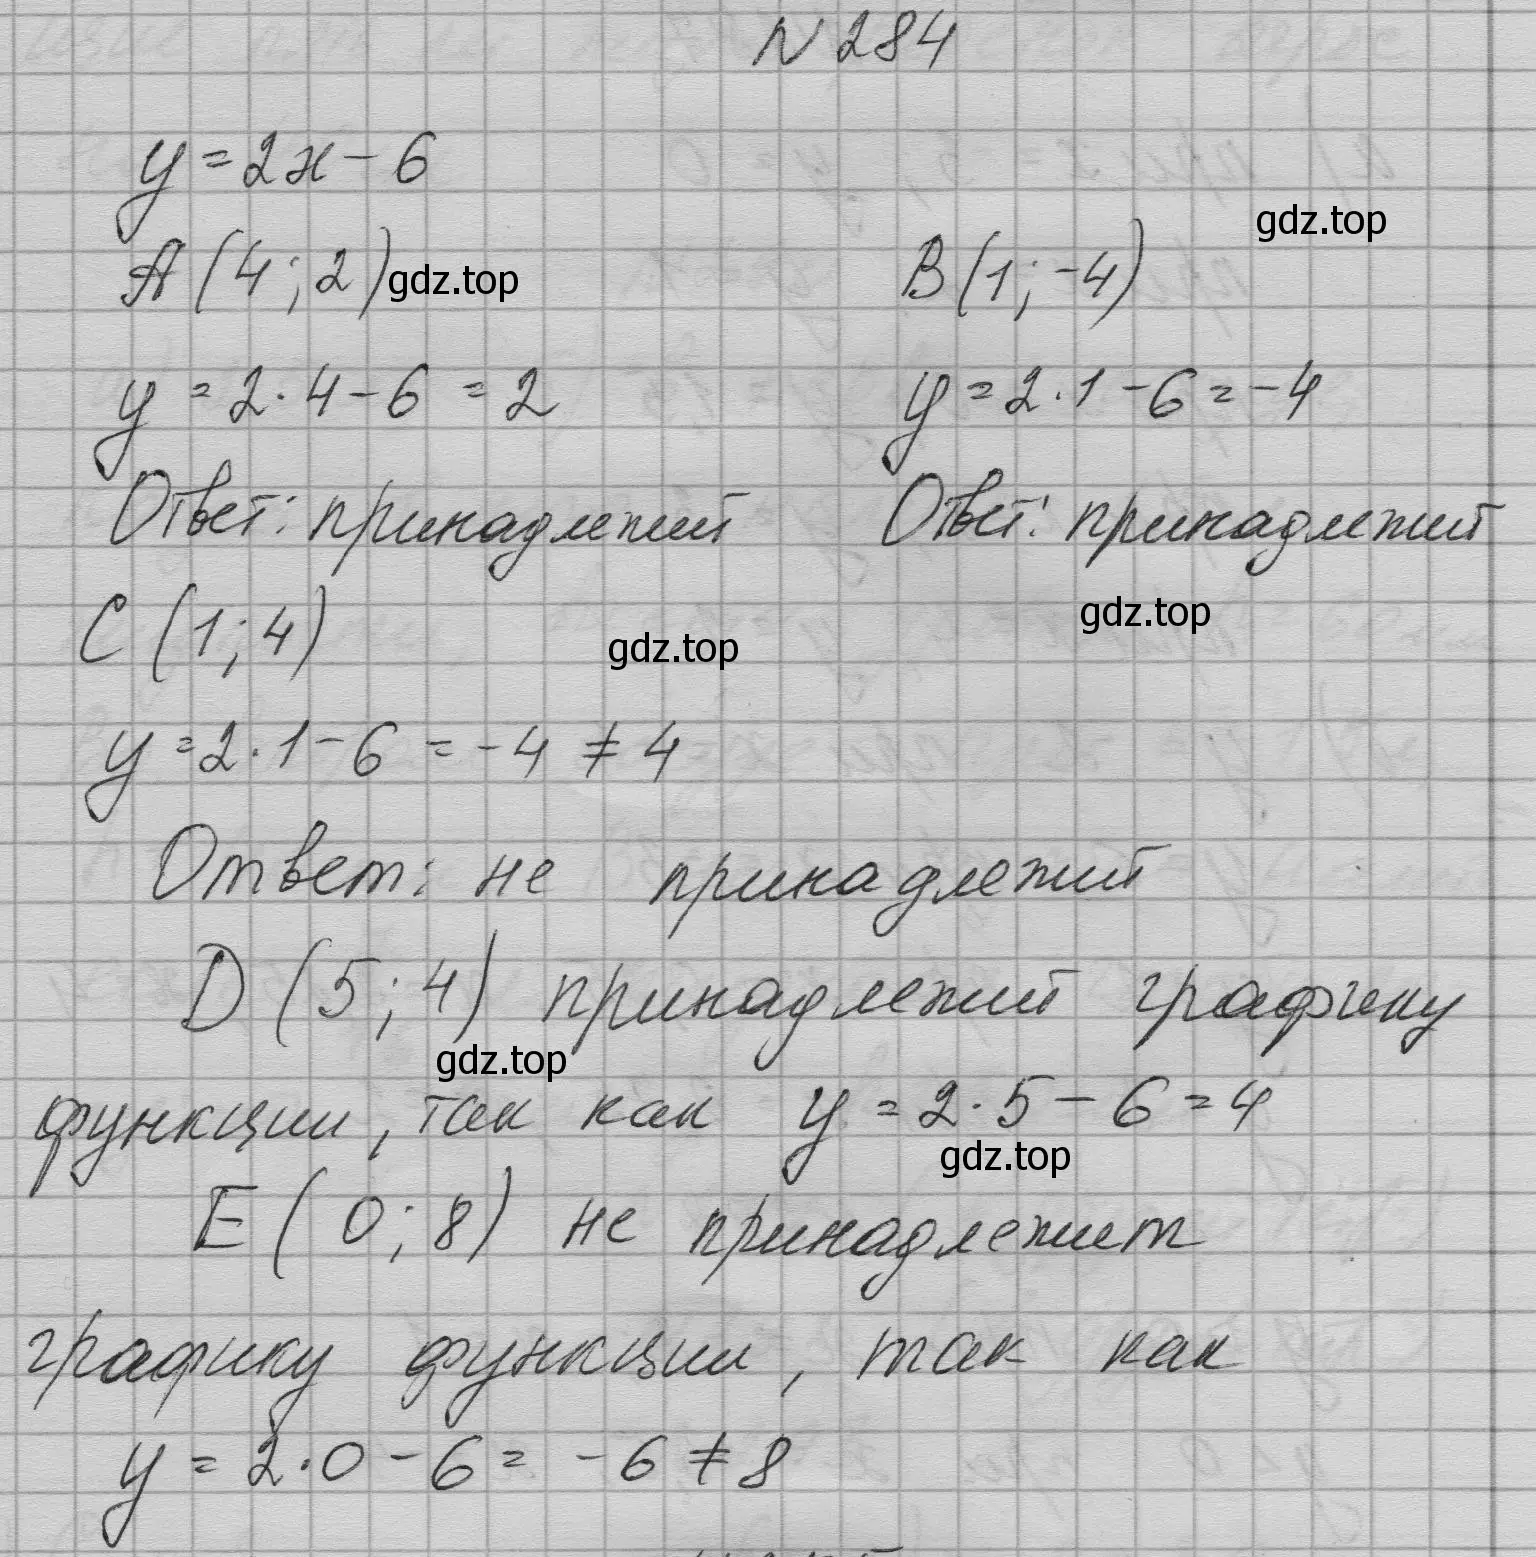 N 284
y = 2x - 6
gdz.top
A (4; 2) gdz.top B (1; -4)
y = 2 · 4 - 6 = 2 y = 2 · 1 - 6 = -4
Ответ: принадлежит Ответ: принадлежит
gdz.top
C (1; 4) gdz.top
y = 2 · 1 - 6 = -4 ≠ 4
Ответ: не принадлежит
D (5; 4) принадлежит графику
gdz.top
функции, так как y = 2 · 5 - 6 = 4
gdz.top
E (0; 8) не принадлежит
графику функции, так как
y = 2 · 0 - 6 = -6 ≠ 8